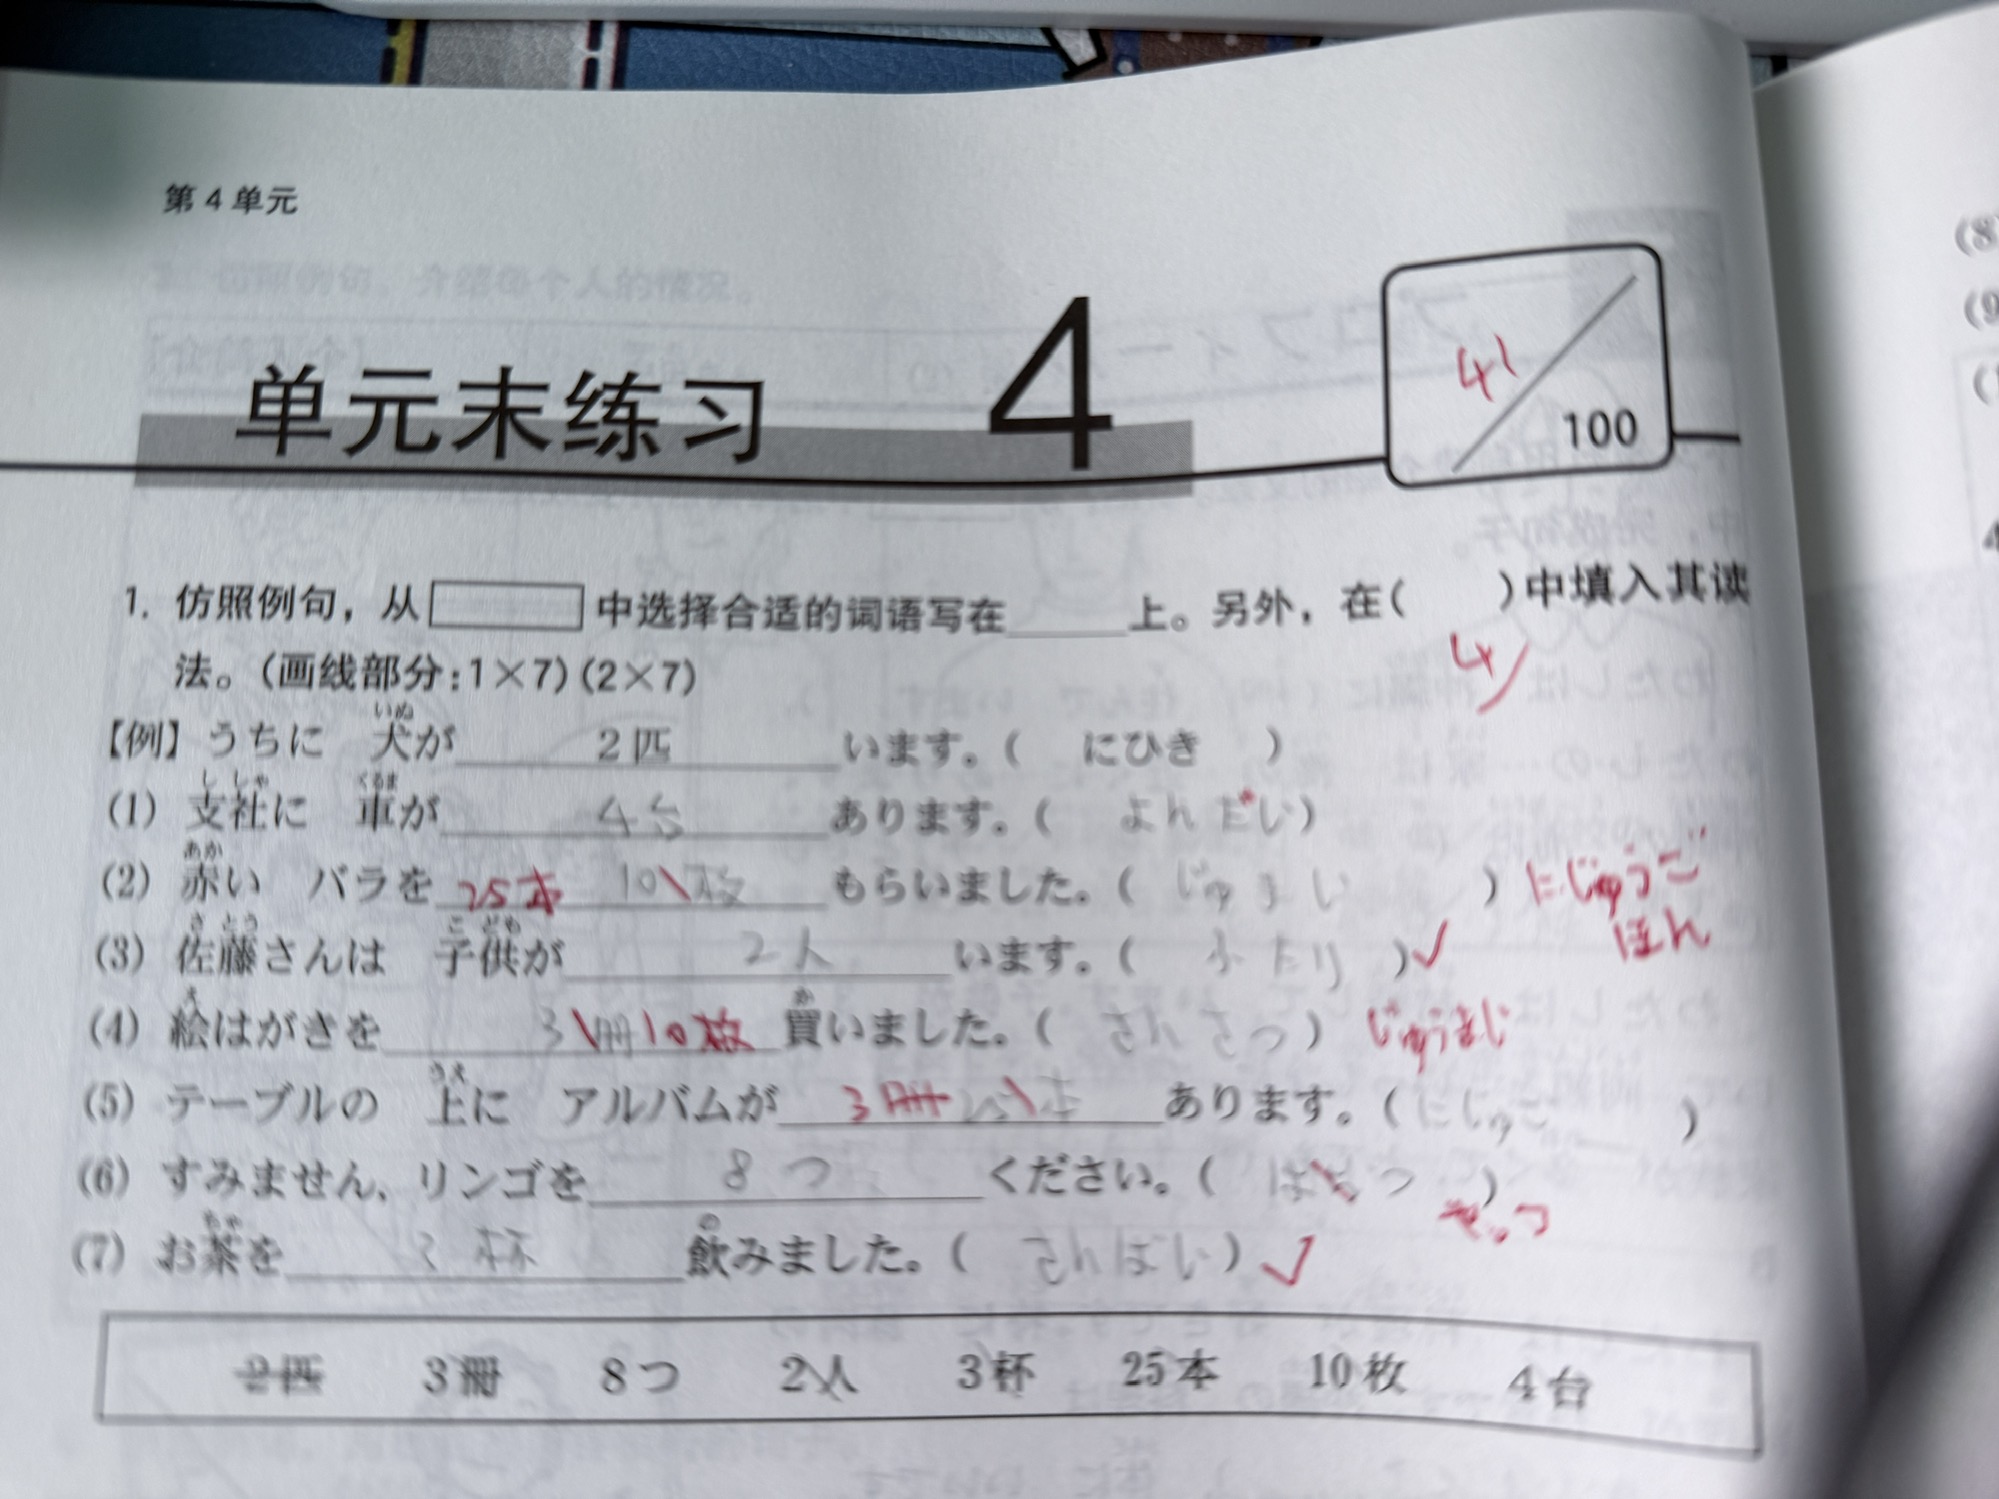 第4单元
单元末练习 4
41/100
1. 仿照例句，从 中选择合适的词语写在____上。另外，在( )中填入其读
法。(画线部分:1×7)(2×7)
4/
いぬ
【例】うちに 犬が 2匹 います。( にひき )
ししゃ くるま
(1) 支社に 車が 4台 あります。( よんだい )
あか
(2) 赤い バラを 25本 10枚 もらいました。( じゅまい ) にじゅうご
ほん
さとう こども
(3) 佐藤さんは 子供が 2人 います。( ふたり )✓
え か
(4) 絵はがきを 3冊 10枚 買いました。( さんさつ ) じゅうまい
うえ
(5) テーブルの 上に アルバムが 3冊 25本 あります。( にじゅご )
(6) すみません，リンゴを 8つ ください。( はちつ )
やっつ
ちゃ の
(7) お茶を 3杯 飲みました。( さんばい )✓
2匹 3冊 8つ 2人 3杯 25本 10枚 4台